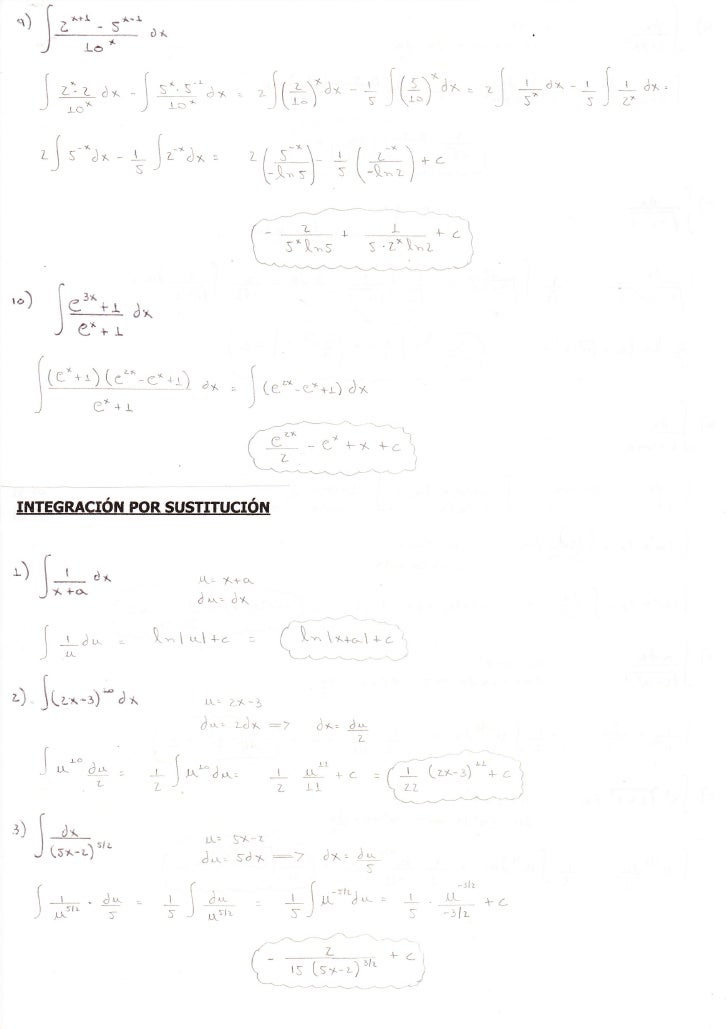 9) ∫ (2^(x+1) - 5^(x-1))/10^x dx
∫ (2^x·2)/10^x dx - ∫ (5^x·5^-1)/10^x dx = 2∫(2/10)^x dx - 1/5 ∫(5/10)^x dx = 2∫ 1/5^x dx - 1/5 ∫ 1/2^x dx =
2∫5^-x dx - 1/5 ∫2^-x dx = 2(5^-x/-ln5) - 1/5 (2^-x/-ln2) + c
- 2/(5^x ln5) + 1/(5·2^x ln2) + c
10) ∫ (e^3x + 1)/(e^x + 1) dx
∫ ((e^x + 1)(e^2x - e^x + 1))/(e^x + 1) dx = ∫(e^2x - e^x + 1) dx
e^2x/2 - e^x + x + c
INTEGRACIÓN POR SUSTITUCIÓN
1) ∫ 1/(x+a) dx u = x+a
du = dx
∫ 1/u du = ln|u| + c = ln|x+a| + c
2) ∫(2x-3)^10 dx u = 2x-3
du = 2dx => dx = du/2
∫u^10 du/2 = 1/2 ∫u^10 du = 1/2 u^11/11 + c = 1/22 (2x-3)^11 + c
3) ∫ dx/(5x-2)^5/2 u = 5x-2
du = 5dx => dx = du/5
∫ 1/u^5/2 · du/5 = 1/5 ∫ du/u^5/2 = 1/5 ∫u^-5/2 du = 1/5 · u^-3/2/-3/2 + c
- 2/(15 (5x-2)^3/2) + c